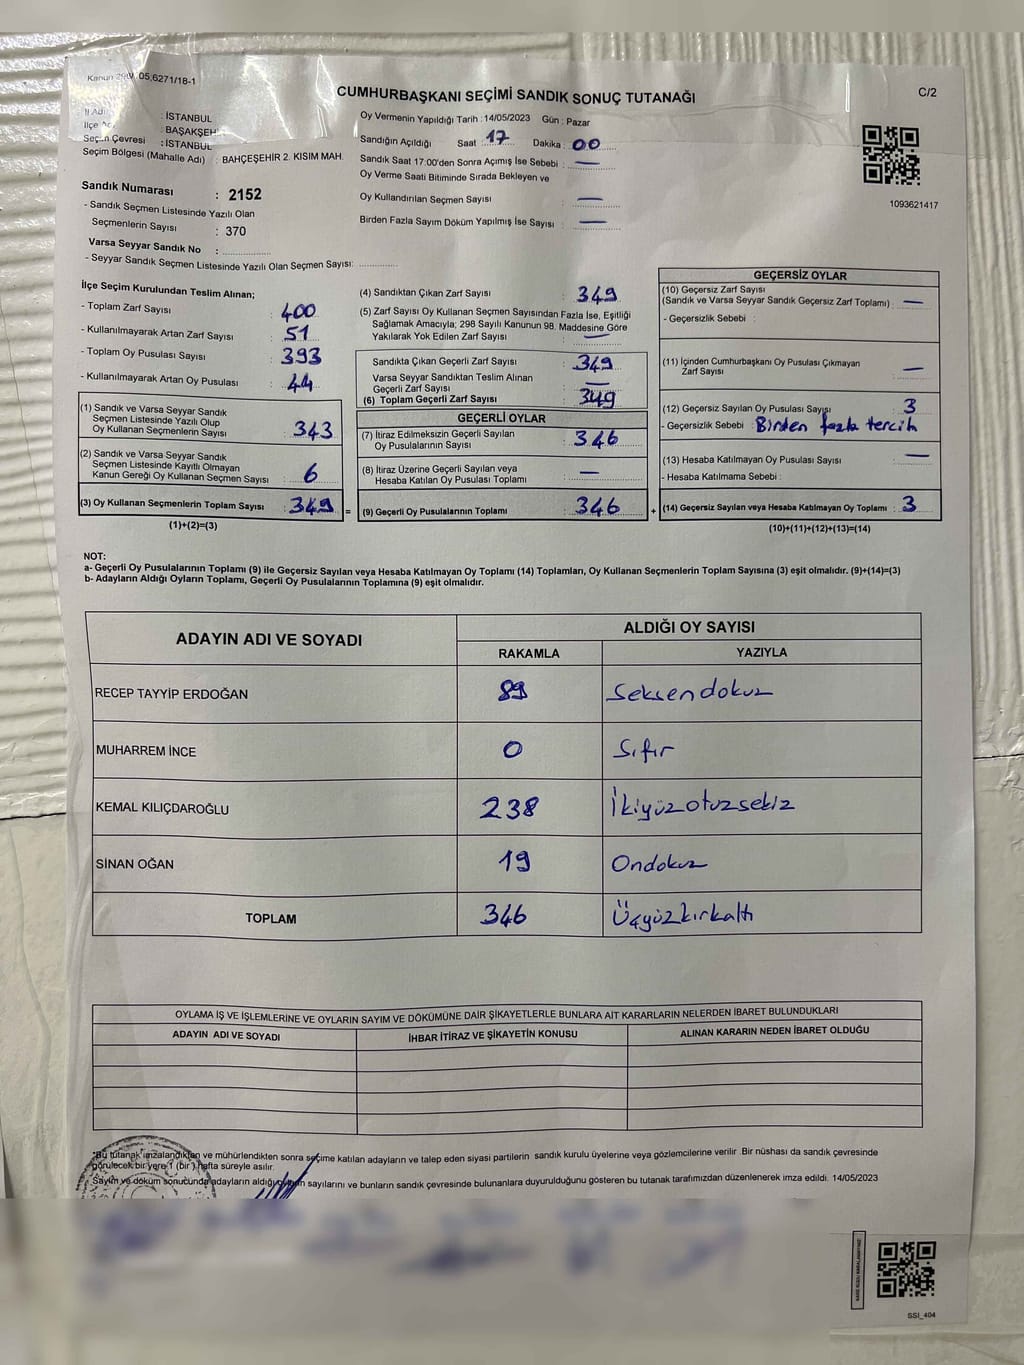 Kanun 298/ .05.6271/18-1
CUMHURBAŞKANI SEÇİMİ SANDIK SONUÇ TUTANAĞI
C/2
İl Adı : İSTANBUL
İlçe : BAŞAKŞEH
Seçim Çevresi : İSTANBUL
Seçim Bölgesi (Mahalle Adı) : BAHÇEŞEHİR 2. KISIM MAH.
Sandık Numarası : 2152
- Sandık Seçmen Listesinde Yazılı Olan
Seçmenlerin Sayısı : 370
Varsa Seyyar Sandık No :
- Seyyar Sandık Seçmen Listesinde Yazılı Olan Seçmen Sayısı:
Oy Vermenin Yapıldığı Tarih : 14/05/2023 Gün : Pazar
Sandığın Açıldığı Saat : 17 Dakika : 00
Sandık Saat 17:00'den Sonra Açımış İse Sebebi : —
Oy Verme Saati Bitiminde Sırada Bekleyen ve
Oy Kullandırılan Seçmen Sayısı : —
Birden Fazla Sayım Döküm Yapılmış İse Sayısı : —
1093621417
İlçe Seçim Kurulundan Teslim Alınan;
- Toplam Zarf Sayısı : 400
- Kullanılmayarak Artan Zarf Sayısı : 51
- Toplam Oy Pusulası Sayısı : 393
- Kullanılmayarak Artan Oy Pusulası : 44
(1) Sandık ve Varsa Seyyar Sandık
Seçmen Listesinde Yazılı Olup
Oy Kullanan Seçmenlerin Sayısı : 343
(2) Sandık ve Varsa Seyyar Sandık
Seçmen Listesinde Kayıtlı Olmayan
Kanun Gereği Oy Kullanan Seçmen Sayısı : 6
(3) Oy Kullanan Seçmenlerin Toplam Sayısı : 349 =
(1)+(2)=(3)
(4) Sandıktan Çıkan Zarf Sayısı : 349
(5) Zarf Sayısı Oy Kullanan Seçmen Sayısından Fazla İse, Eşitliği
Sağlamak Amacıyla; 298 Sayılı Kanunun 98. Maddesine Göre
Yakılarak Yok Edilen Zarf Sayısı : —
Sandıkta Çıkan Geçerli Zarf Sayısı : 349
Varsa Seyyar Sandıktan Teslim Alınan
Geçerli Zarf Sayısı : —
(6) Toplam Geçerli Zarf Sayısı : 349
GEÇERLİ OYLAR
(7) İtiraz Edilmeksizin Geçerli Sayılan
Oy Pusulasının Sayısı : 346
(8) İtiraz Üzerine Geçerli Sayılan veya
Hesaba Katılan Oy Pusulası Toplamı : —
(9) Geçerli Oy Pusulalarının Toplamı : 346 +
GEÇERSİZ OYLAR
(10) Geçersiz Zarf Sayısı
(Sandık ve Varsa Seyyar Sandık Geçersiz Zarf Toplamı) : —
- Geçersizlik Sebebi :
(11) İçinden Cumhurbaşkanı Oy Pusulası Çıkmayan
Zarf Sayısı : —
(12) Geçersiz Sayılan Oy Pusulası Sayısı : 3
- Geçersizlik Sebebi : Birden fazla tercih
(13) Hesaba Katılmayan Oy Pusulası Sayısı : —
- Hesaba Katılmama Sebebi :
(14) Geçersiz Sayılan veya Hesaba Katılmayan Oy Toplamı : 3
(10)+(11)+(12)+(13)=(14)
NOT:
a- Geçerli Oy Pusulalarının Toplamı (9) ile Geçersiz Sayılan veya Hesaba Katılmayan Oy Toplamı (14) Toplamları, Oy Kullanan Seçmenlerin Toplam Sayısına (3) eşit olmalıdır. (9)+(14)=(3)
b- Adayların Aldığı Oyların Toplamı, Geçerli Oy Pusulalarının Toplamına (9) eşit olmalıdır.
ADAYIN ADI VE SOYADI
ALDIĞI OY SAYISI
RAKAMLA YAZIYLA
RECEP TAYYİP ERDOĞAN 89 Seksendokuz
MUHARREM İNCE 0 Sıfır
KEMAL KILIÇDAROĞLU 238 İkiyüzotuzsekiz
SİNAN OĞAN 19 Ondokuz
TOPLAM 346 Üçyüzkırkaltı
OYLAMA İŞ VE İŞLEMLERİNE VE OYLARIN SAYIM VE DÖKÜMÜNE DAİR ŞİKAYETLERLE BUNLARA AİT KARARLARIN NELERDEN İBARET BULUNDUKLARI
ADAYIN ADI VE SOYADI İHBAR İTİRAZ VE ŞİKAYETİN KONUSU ALINAN KARARIN NEDEN İBARET OLDUĞU
*Bu tutanak imzalandıktan ve mühürlendikten sonra seçime katılan adayların ve talep eden siyasi partilerin sandık kurulu üyelerine veya gözlemcilerine verilir. Bir nüshası da sandık çevresinde
görülecek bir yere 1 (bir) hafta süreyle asılır.
Sayım ve döküm sonucunda adayların aldığı oyların sayılarını ve bunların sandık çevresinde bulunanlara duyurulduğunu gösteren bu tutanak tarafımızdan düzenlenerek imza edildi. 14/05/2023
SSI_404